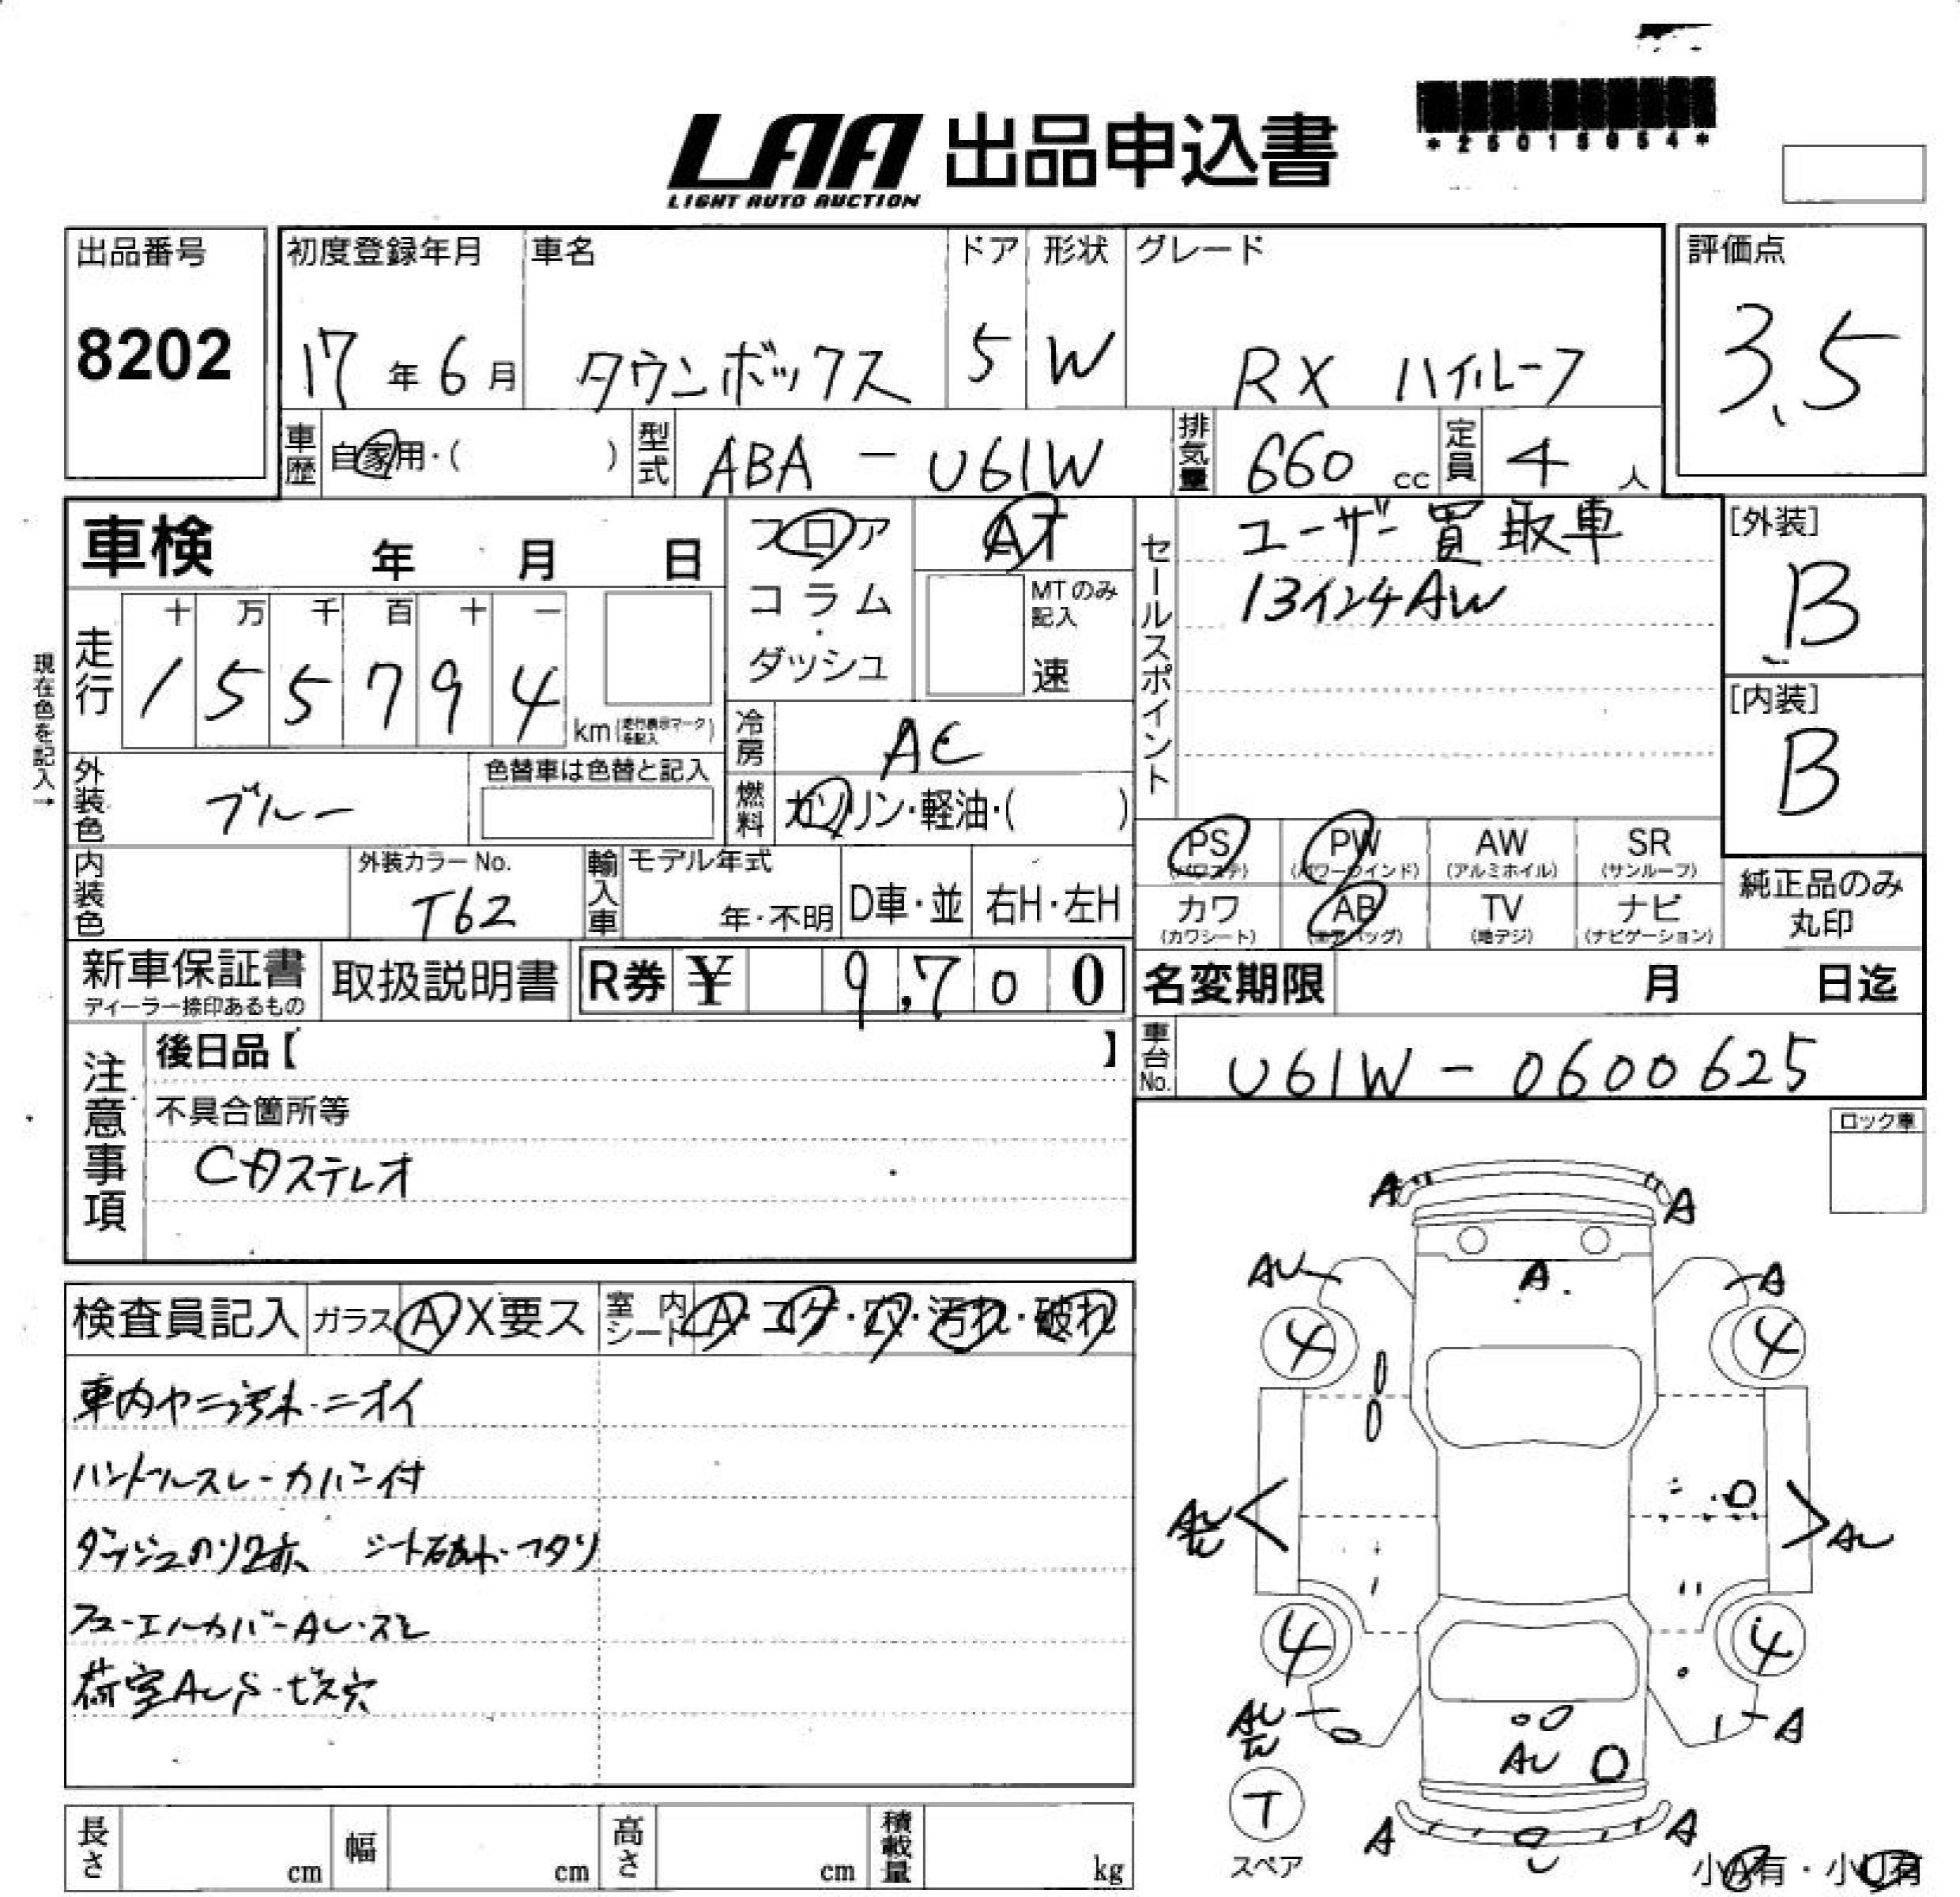 *25015054*
LAA 出品申込書
LIGHT AUTO AUCTION
出品番号
8202
初度登録年月
17年6月
車名
タウンボックス
ドア
5
形状
W
グレード
RX ハイルーフ
評価点
3.5
車歴
自家用・( )
型式
ABA - U61W
排気量
660 cc
定員
4 人
車検 年 月 日
フロア
コラム
・
ダッシュ
AT
MTのみ記入
速
セールスポイント
ユーザー買取車
13インチAW
[外装]
B
[内装]
B
現在色を記入→
走行
十 万 千 百 十 一
1 5 5 7 9 4
km(走行表示マークを記入)
冷房
AC
燃料
ガソリン・軽油・( )
外装色
ブルー
色替車は色替と記入
内装色
外装カラーNo.
T62
輸入車
モデル年式
年・不明
D車・並
右H・左H
PS
(パワステ)
PW
(パワーウインド)
AW
(アルミホイル)
SR
(サンルーフ)
カワ
(カワシート)
AB
(エアバッグ)
TV
(地デジ)
ナビ
(ナビゲーション)
純正品のみ
丸印
新車保証書
ディーラー捺印あるもの
取扱説明書
R券 ¥ 9,700
名変期限 月 日迄
車台No.
U61W - 0600625
注意事項
後日品【 】
不具合箇所等
CDステレオ
ロック車
検査員記入
ガラス A X 要ス
室内シート A・コゲ・穴・汚れ・破れ
車内ヤニ汚れ・ニオイ
ハンドルスレ・カバー付
ダッシュのリ跡 シート破れ・フタリ
フューエルカバーAU・スレ
荷室AUS・ビス穴
A
A
AU
A
A
4
4
AU
AU
4
4
AU
A
AU
T
スペア
A
A
小A有・小U有
長さ cm
幅 cm
高さ cm
積載量 kg